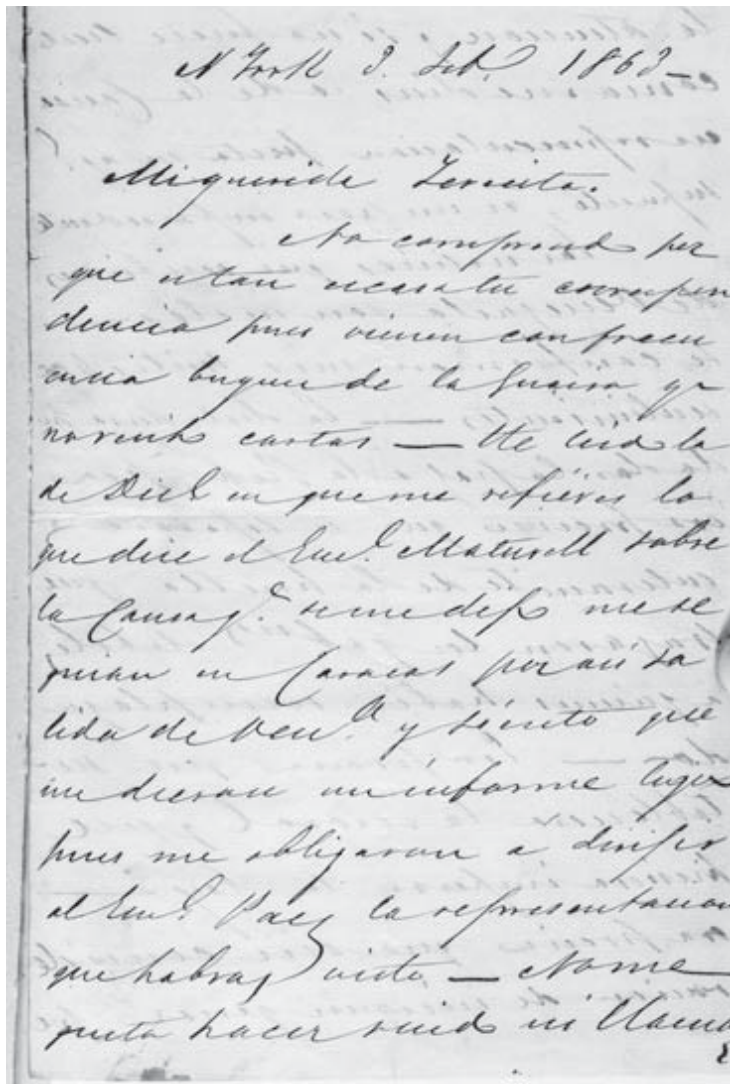 N York 3. Feb. 1863_
Mi querida Teresita.
No comprendo por
que es tan escasa tu correspon
dencia pues vienen con frecu
encia buques de la Guaira qe
no reciben cartas — He leido la
de Dicl en que me refieres lo
que dice el Genl. Maturell sobre
la Causa qe. se me dijo me se
guian en Caracas por mi sa
lida de Venla. y siento que
me dieran un informe ligero
pues me obligaron a dirijir
al Genl. Paez la representacion
que habras visto — No me
gusta hacer ruido ni llama